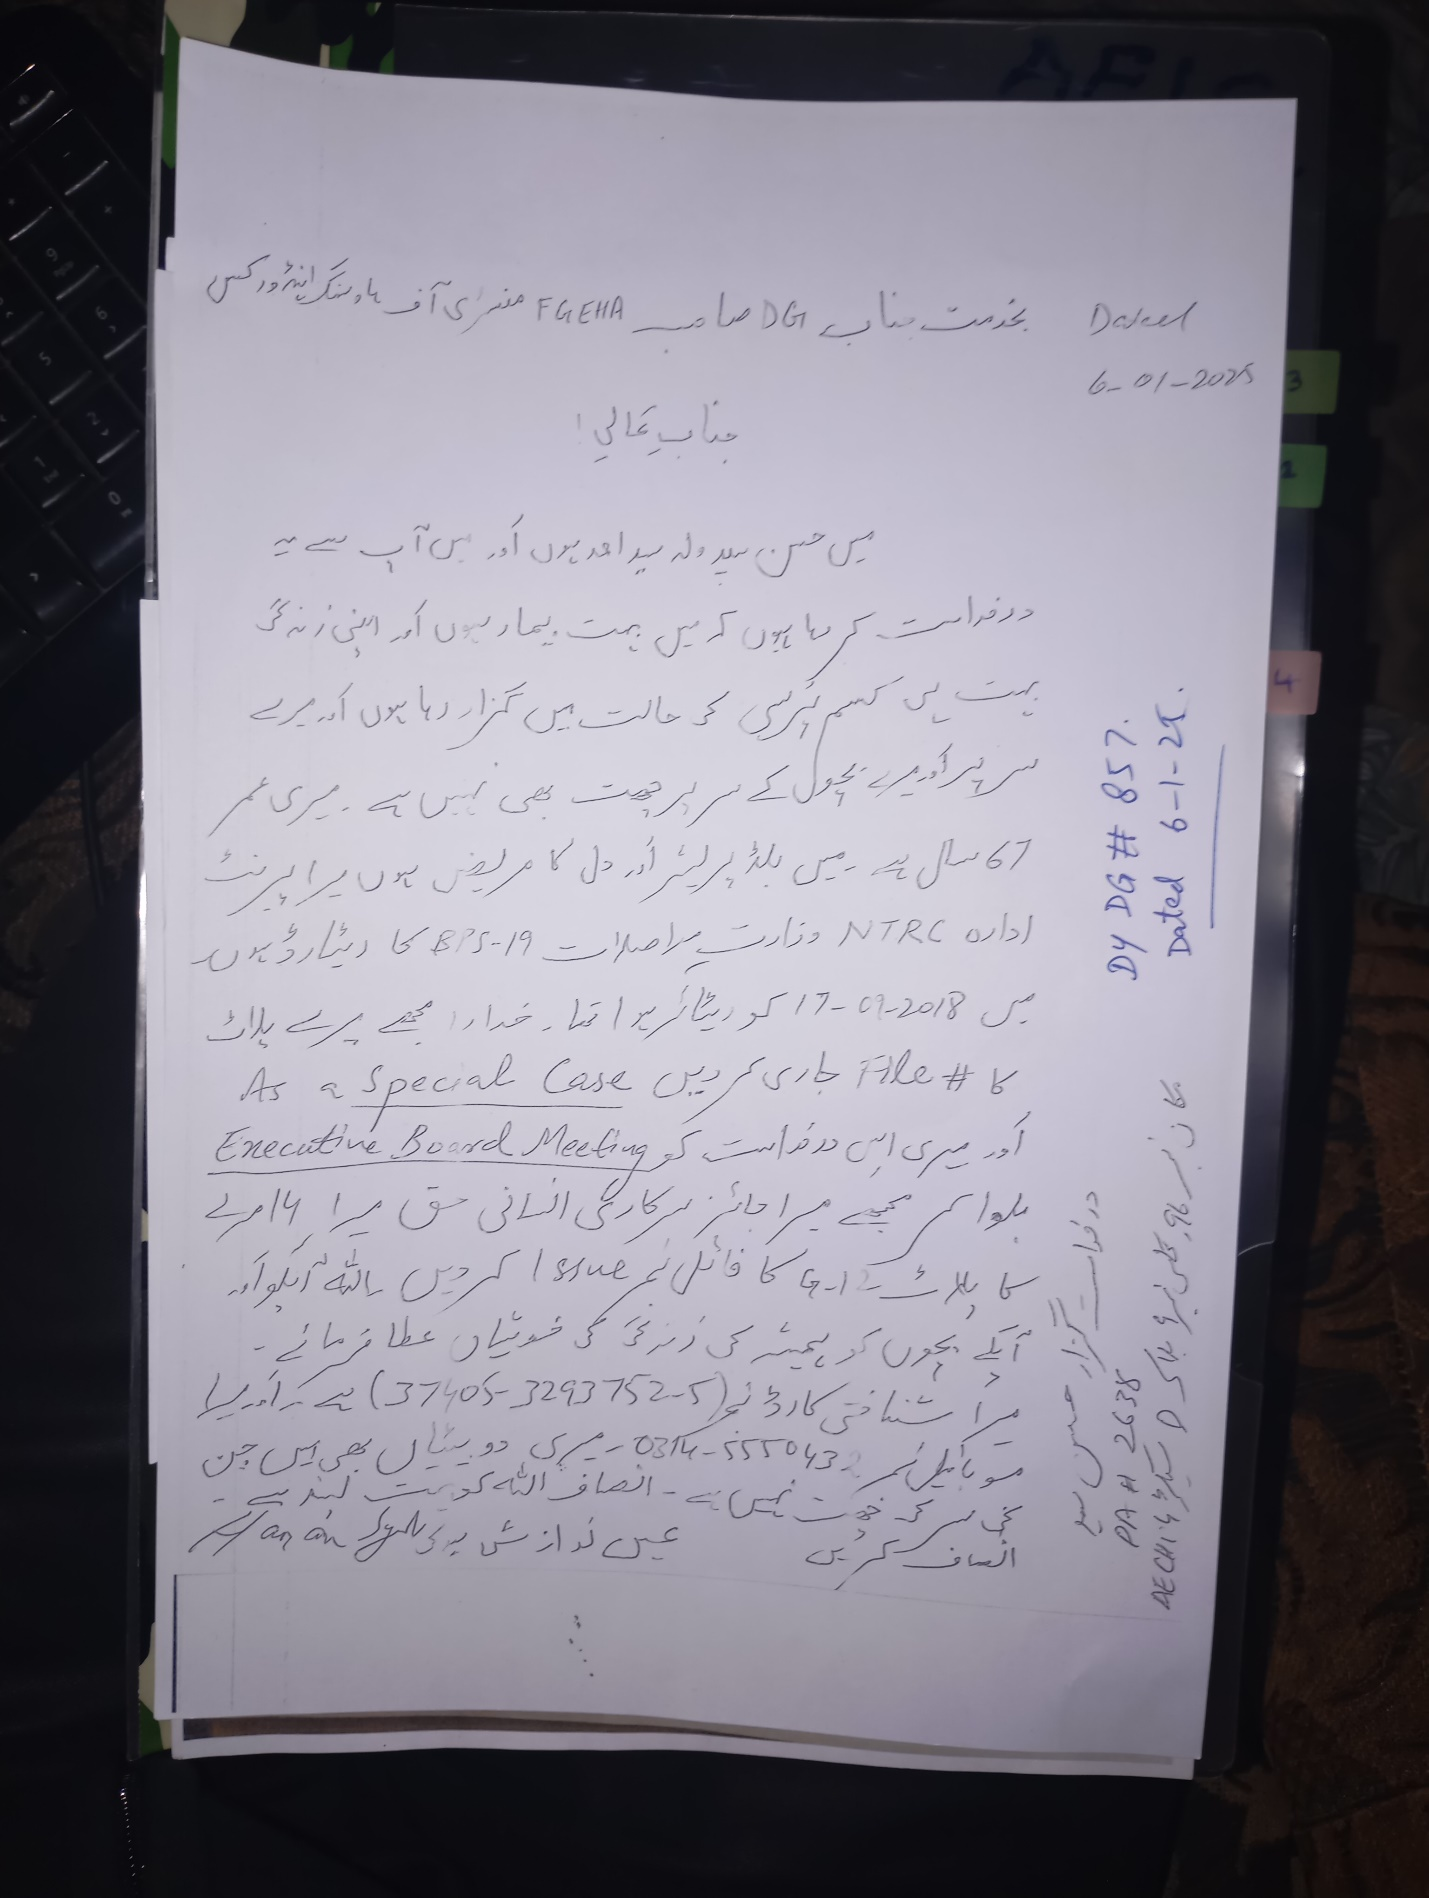 Dated
6-01-2025
بخدمت جناب DG صاحب FGEHA منسٹری آف ہاوسنگ اینڈ ورکس
جناب عالی!
میں حسن سید ولد سید احمد ہوں اور میں آپ سے یہ
درخواست کر رہا ہوں کہ میں بہت بیمار ہوں اور اپنی زندگی
بہت ہی کسم پرسی کی حالت میں گزار رہا ہوں اور میرے
سر پر اور میرے بچوں کے سر پر چھت بھی نہیں ہے۔ میری عمر
67 سال ہے۔ میں بلڈ پریشر اور دل کا مریض ہوں میرا پیرنٹ
ادارہ NTRC وزارت مواصلات BPS-19 کا ریٹارڈ ہوں۔
میں 17-09-2018 کو ریٹائر ہوا تھا۔ خدارا مجھے میرے پلاٹ
کا File # جاری کر دیں As a Special Case
اور میری اس درخواست کو Executive Board Meeting
بلوا کر مجھے میرا جائز سرکاری انسانی حق میرا 14 مرلے
کا پلاٹ G-12 کا فائل نمبر Issue کر دیں۔ اللہ آپکو اور
آپکے بچوں کو ہمیشہ کی زندگی کی خوشیاں عطا فرمائے۔
میرا شناختی کارڈ نمبر (37405-3293752-5) ہے۔ اور میرا
موبائیل نمبر 0314-5550432۔ میری دو بیٹیاں بھی ہیں جن
کی سر کی چھت نہیں ہے۔ انصاف اللہ کو بہت پسند ہے۔
انصاف کریں عین نوازش ہوگی
DY DG # 857.
Dated 6-1-25.
درخواست گزار حسن سید
PA # 2638
مکان نمبر 96، گلی نمبر 6 بلاک D سیکٹر AECHS